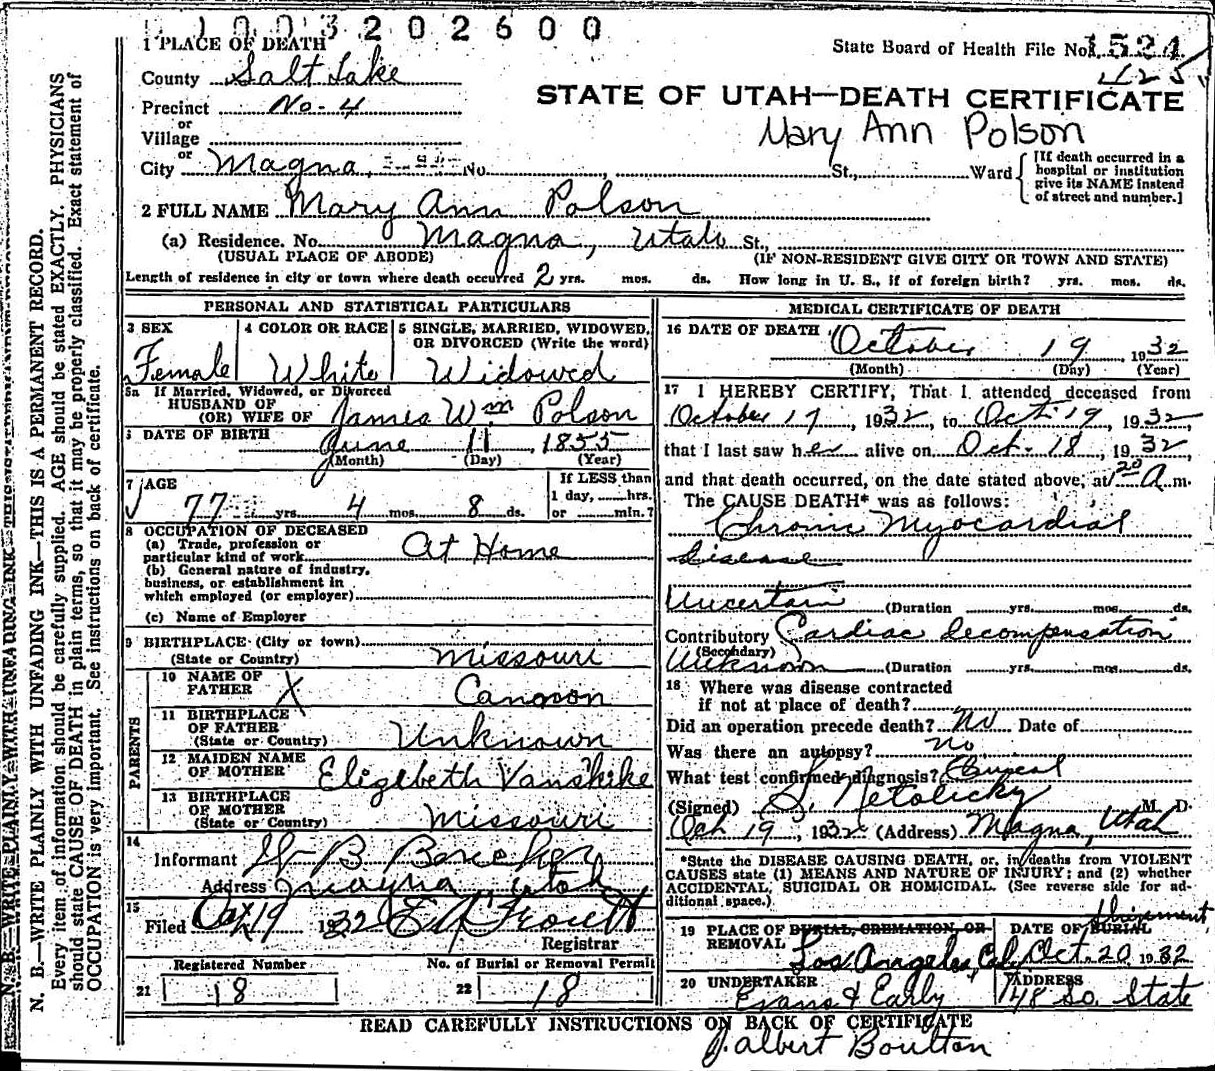 1003202600
1 PLACE OF DEATH
State Board of Health File No. 1524
County Salt Lake
425
Precinct No. 4
STATE OF UTAH—DEATH CERTIFICATE
or
Village
Mary Ann Polson
or
City Magna, No. , St., Ward
[If death occurred in a hospital or institution give its NAME instead of street and number.]
2 FULL NAME Mary Ann Polson
(a) Residence. No. Magna, Utah St.,
(USUAL PLACE OF ABODE) (IF NON-RESIDENT GIVE CITY OR TOWN AND STATE)
Length of residence in city or town where death occurred 2 yrs. mos. ds. How long in U. S., if of foreign birth? yrs. mos. ds.
PERSONAL AND STATISTICAL PARTICULARS
3 SEX 4 COLOR OR RACE 5 SINGLE, MARRIED, WIDOWED, OR DIVORCED (Write the word)
Female White Widowed
5a If Married, Widowed, or Divorced
HUSBAND OF
(OR) WIFE OF James Wm Polson
DATE OF BIRTH June 11, 1855
(Month) (Day) (Year)
7 AGE If LESS than
77 yrs. 4 mos. 8 ds. 1 day, hrs.
or min.?
8 OCCUPATION OF DECEASED
(a) Trade, profession or
particular kind of work At Home
(b) General nature of industry,
business, or establishment in
which employed (or employer)
(c) Name of Employer
9 BIRTHPLACE (City or town)
(State or Country) Missouri
PARENTS
10 NAME OF
FATHER X
11 BIRTHPLACE
OF FATHER
(State or Country) Unknown
12 MAIDEN NAME
OF MOTHER Elizebeth Vanshike
13 BIRTHPLACE
OF MOTHER
(State or Country) Missouri
14
Informant
Address Magna, Utah
15
Filed Oct 19 1932
Registrar
Registered Number No. of Burial or Removal Permit
21 18 22 18
MEDICAL CERTIFICATE OF DEATH
16 DATE OF DEATH October 19, 1932
(Month) (Day) (Year)
17 I HEREBY CERTIFY, That I attended deceased from
October 17, 1932, to Oct. 19, 1932,
that I last saw her alive on Oct. 18, 1932
and that death occurred, on the date stated above, at A m.
The CAUSE DEATH* was as follows:
Chronic Myocardial
Disease
Uncertain (Duration yrs. mos. ds.
Contributory Cardiac decompensation
(Secondary)
Unknown (Duration yrs. mos. ds.
18 Where was disease contracted
if not at place of death?
Did an operation precede death? No Date of
Was there an autopsy? no
What test confirmed diagnosis? Clinical
(Signed) S. Netolicky M. D.
Oct 19, 1932 (Address) Magna, Utah
*State the DISEASE CAUSING DEATH, or, in deaths from VIOLENT
CAUSES state (1) MEANS AND NATURE OF INJURY; and (2) whether
ACCIDENTAL, SUICIDAL OR HOMICIDAL. (See reverse side for ad-
ditional space.)
Shipment
19 PLACE OF BURIAL, CREMATION, OR REMOVAL DATE OF BURIAL
Los Angeles, Cal. Oct. 20 1932
20 UNDERTAKER ADDRESS
Evans & Early 148 So. State
READ CAREFULLY INSTRUCTIONS ON BACK OF CERTIFICATE
J. Albert Boulton
N. B.—WRITE PLAINLY WITH UNFADING INK—THIS IS A PERMANENT RECORD.
Every item of information should be carefully supplied. AGE should be stated EXACTLY. PHYSICIANS
should state CAUSE OF DEATH in plain terms, so that it may be properly classified. Exact statement of
OCCUPATION is very important. See instructions on back of certificate.